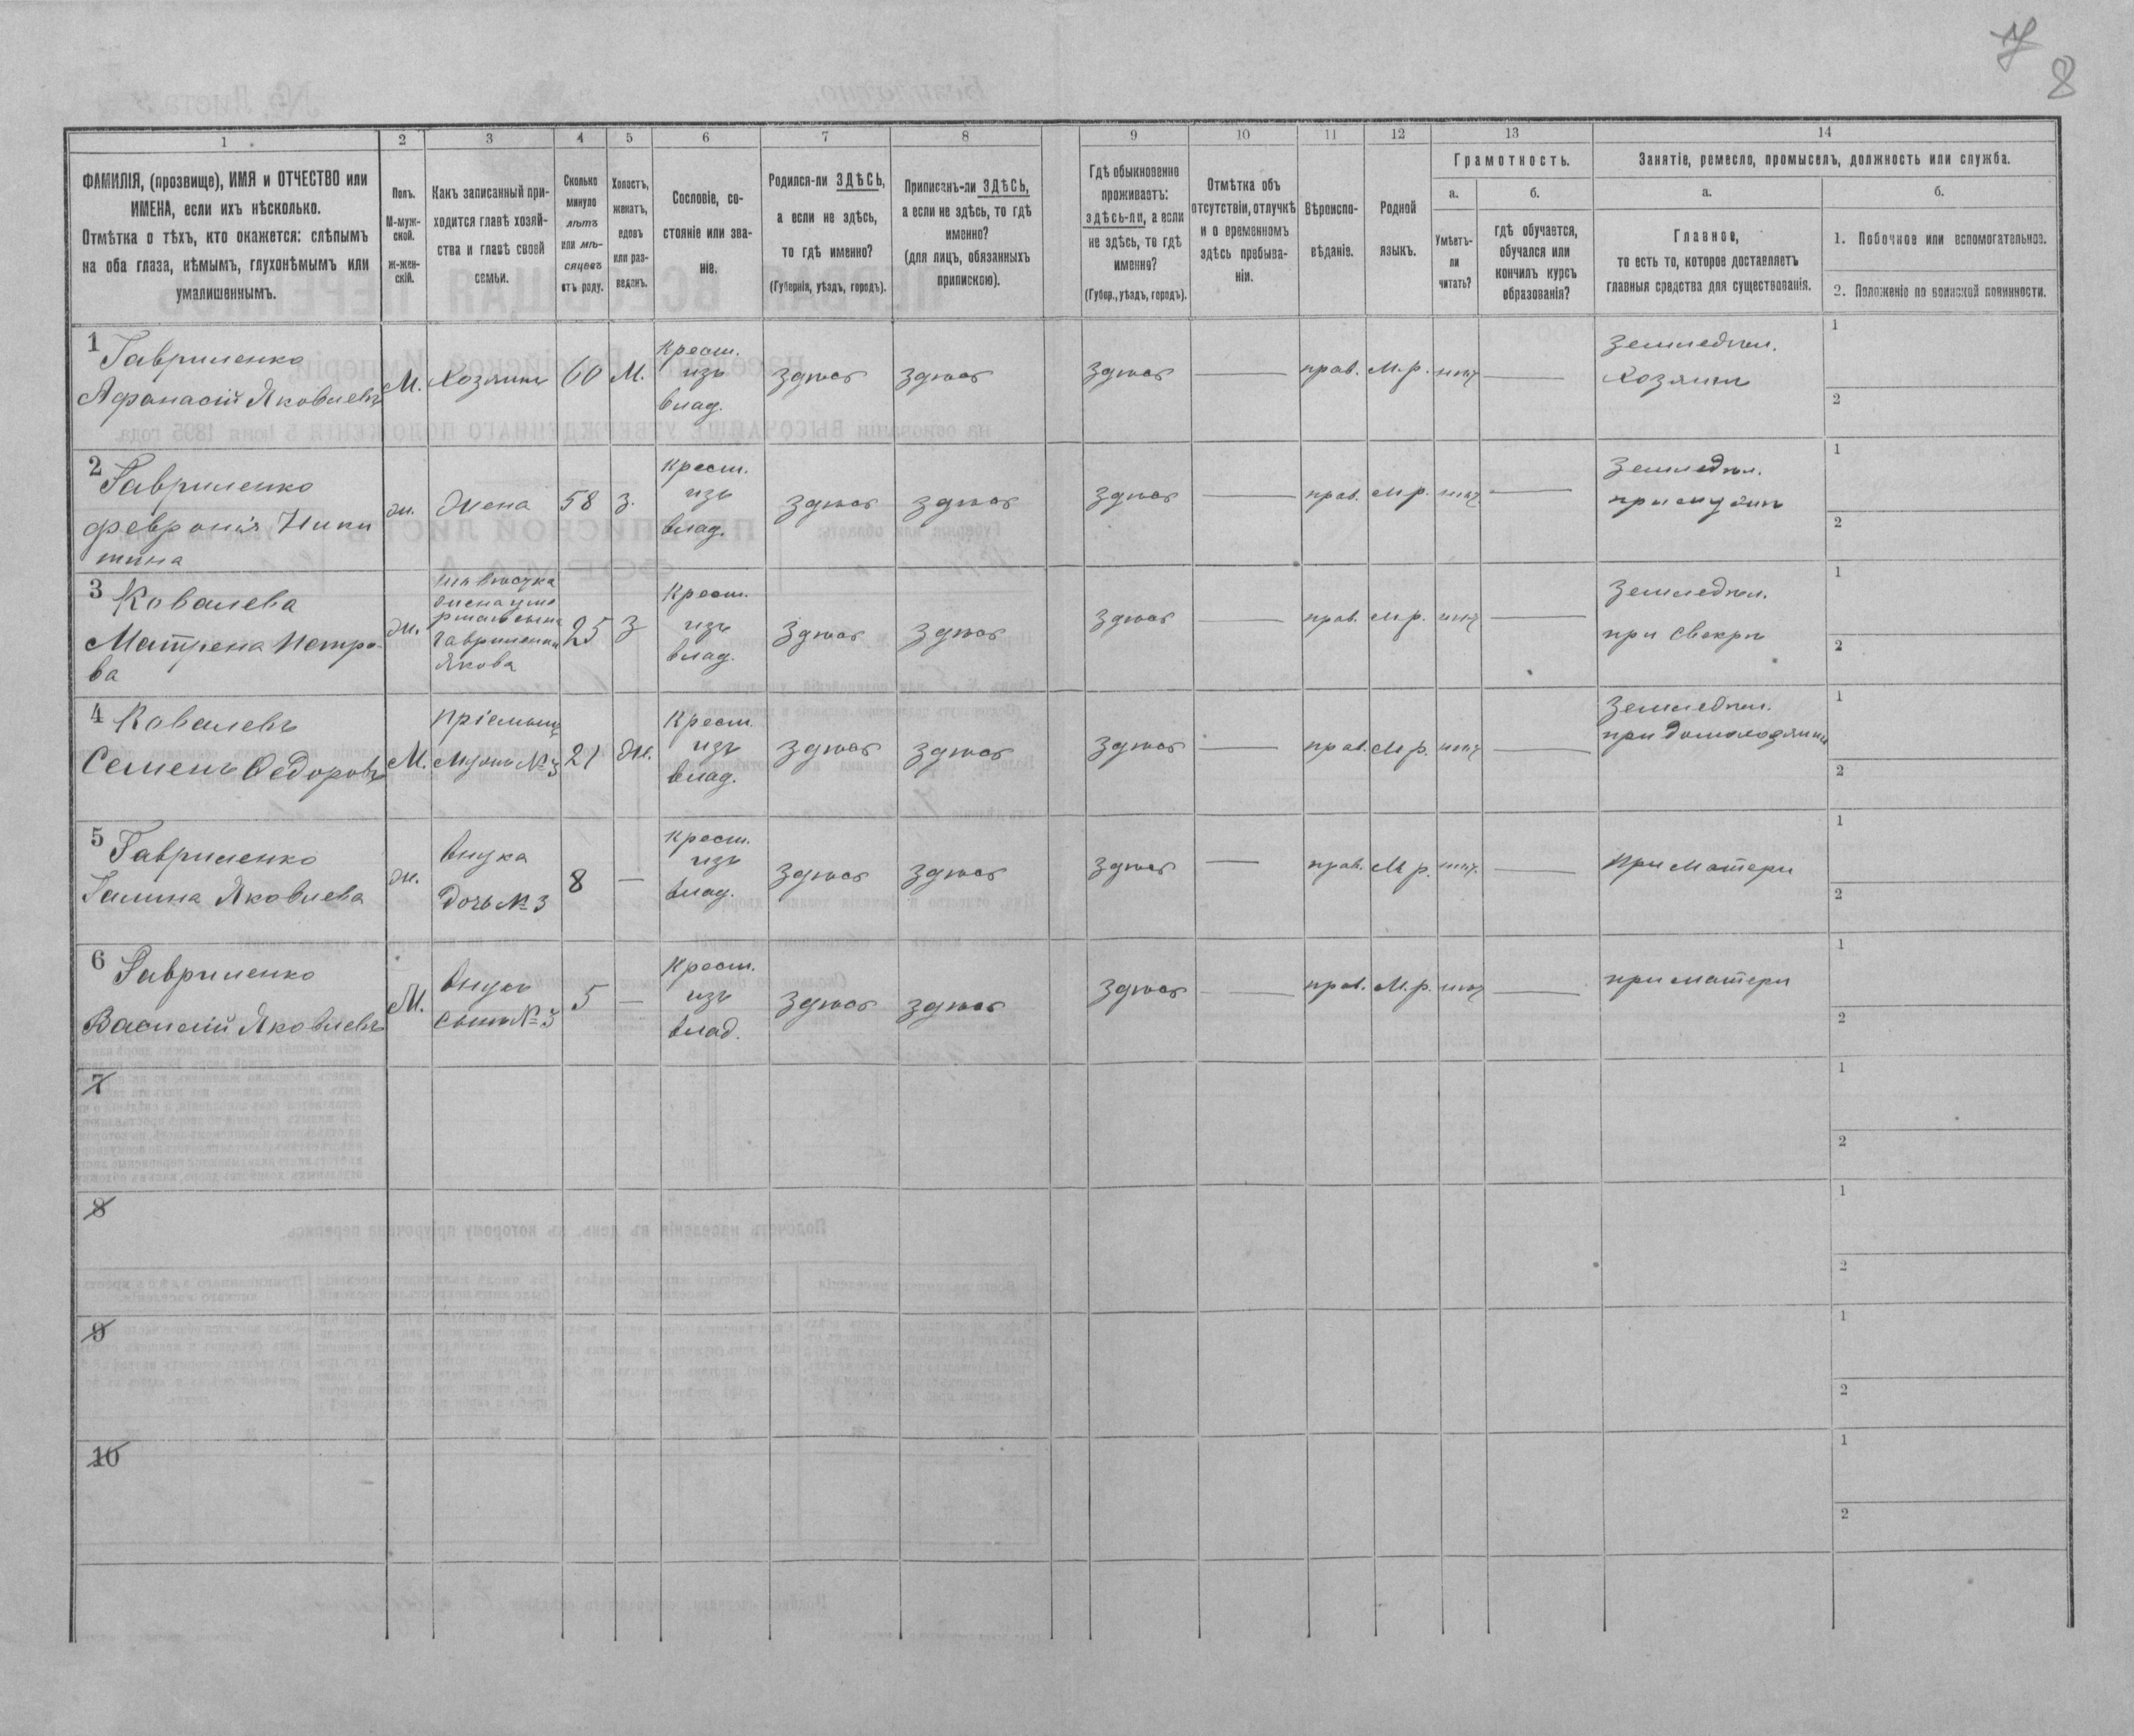 7
8
1 2 3 4 5 6 7 8 9 10 11 12 13 14
ФАМИЛІЯ, (прозвище), ИМЯ и ОТЧЕСТВО или
ИМЕНА, если ихъ нѣсколько.
Отмѣтка о тѣхъ, кто окажется: слѣпымъ
на оба глаза, нѣмымъ, глухонѣмымъ или
умалишеннымъ.
Полъ.
М-муж-
ской.
Ж-жен-
скій.
Какъ записанный при-
ходится главѣ хозяй-
ства и главѣ своей
семьи.
Сколько
минуло
лѣтъ
или мѣ-
сяцевъ
отъ роду.
Холостъ,
женатъ,
вдовъ
или раз-
веденъ.
Сословіе, со-
стояніе или зва-
ніе.
Родился-ли ЗДѢСЬ,
а если не здѣсь,
то гдѣ именно?
(Губернія, уѣздъ, городъ).
Приписанъ-ли ЗДѢСЬ,
а если не здѣсь, то гдѣ
именно?
(для лицъ, обязанныхъ
припискою).
Гдѣ обыкновенно
проживаетъ:
здѣсь-ли, а если
не здѣсь, то гдѣ
именно?
(Губер., уѣздъ, городъ).
Отмѣтка объ
отсутствіи, отлучкѣ
и о временномъ
здѣсь пребыва-
ніи.
Вѣроиспо-
вѣданіе.
Родной
языкъ.
Грамотность.
а.
Умѣетъ-
ли
читать?
б.
гдѣ обучается,
обучался или
кончилъ курсъ
образованія?
Занятіе, ремесло, промыселъ, должность или служба.
а.
Главное,
то есть то, которое доставляетъ
главныя средства для существованія.
б.
1. Побочное или вспомогательное.
2. Положеніе по воинской повинности.
1 Гавриленко
Афанасій Яковлевъ
М. Хозяинъ 60 М.
Крест.
изъ
влад.
здѣсь здѣсь здѣсь — прав. М.р. нѣтъ —
Земледѣл.
Хозяинъ
1
2
2 Гавриленко
Февронія Ники
тина
ж. Жена 58 з.
Крест.
изъ
влад.
здѣсь здѣсь здѣсь — прав. М р. нѣтъ —
Земледѣл.
при мужѣ
1
2
3 Ковалева
Матрена Петро-
ва
ж.
Невѣстка
жена уме
ршаго сына
Гавриленка
Якова
25 З
Крест.
изъ
влад.
здѣсь здѣсь здѣсь — прав. М.р. нѣтъ —
Земледѣл.
при свекрѣ
1
2
4 Ковалевъ
Семенъ Ѳедоровъ
М.
Пріемышъ
мужъ № 3
21 Ж.
Крест.
изъ
влад.
здѣсь здѣсь здѣсь — прав. М р. нѣтъ —
Земледѣл.
при домохозяинѣ
1
2
5 Гавриленко
Галина Яковлева
ж.
Внука
Дочь № 3
8 —
Крест.
изъ
влад.
здѣсь здѣсь здѣсь — прав. М р. нѣтъ. —
При матери
1
2
6 Гавриленко
Василій Яковлевъ
М.
Внукъ
Сынъ № 3
5 —
Крест.
изъ
влад.
здѣсь здѣсь здѣсь — прав. М.р. нѣтъ —
при матери
1
2
7
1
2
8
1
2
9
1
2
10
1
2